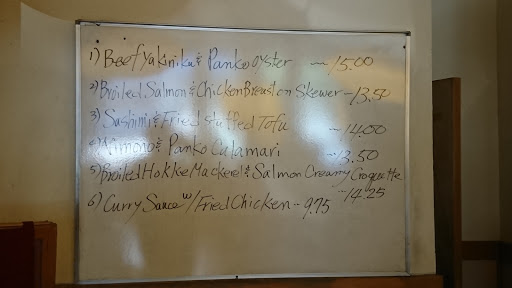 1) Beef Yakiniku & Panko oyster — 15.00
2) Broiled Salmon & Chicken Breast on Skewer — 13.50
3) Sashimi & Fried stuffed Tofu — 14.00
4) Nimono & Panko Calamari — 13.50
5) Broiled Hokke Mackerel & Salmon Creamy Croquette — 14.25
6) Curry Sauce w/ Fried Chicken — 9.75